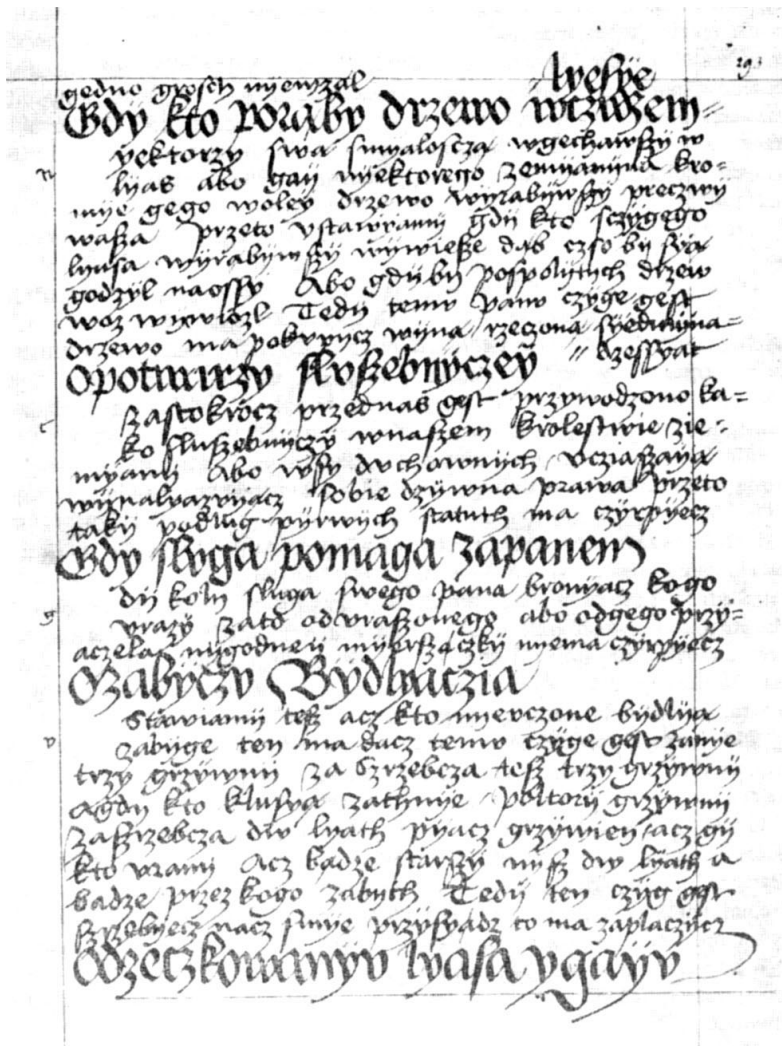 193
gedno groſch nyewzal
lyeſye
Gdy kto porąby drzewo wczudzem
n yektorzy ſwą ſmyaloſczą wgechawſzy w
lyas abo gay nyektorego zemyanyna kro-
mye gego woley drzewo wyrąbywſzy precz wy
wążą przeto vſtawyamy gdy kto ſczygego
lyaſa wyrąbywſzy wywieze dąb czſo by ſzyą
godzyl naoſſy Abo gdyby poſpolytych drzew
woz wywiozl Tedy temu panu czyge geſt
drzewo ma pokupycz wyna rzeczona ſyedmyna-
dzeſſyat
Opotwarzy ſluſzebnyczey
c zaſtokrocz przednas geſt przywodzono ka-
ko ſluſzebnyczy wnaſzem Kroleſtwie zie-
myany Abo wſy duchownych vcziązaya
wynalyazuyacz ſobie dzywna prawa przeto
taky podlug pyrwych ſtatuth ma czyrpyecz
Gdy ſluga pomaga zapanem
g dy koly ſluga ſwego pana bronyacz kogo
vrazy zatd odvrazonego abo odgego przy-
aczela nygodney nyerzączky nyema czyrpyecz
Ozabyczy Bydlyaczia
v Stawiamy teſz acz kto nyevczone bydlyą
zabyge ten ma dacz temu czyge geſt zanye
trzy grzywny za Szrzebcza teſz trzy grzywny
Agdy kto kluſyą zathnye poltory grzywny
zaſzrzebcza dw lyath pyacz grzywien acz gy
kto vrany Acz bądze ſtarſzy nyſz dw lyath a
bądze przez kogo zabyth Tedy ten czyg geſt
ſzrzebyecz nacz ſmye przyſyądz to ma zaplaczycz
Odzeczkowanyv lyaſa ygayv